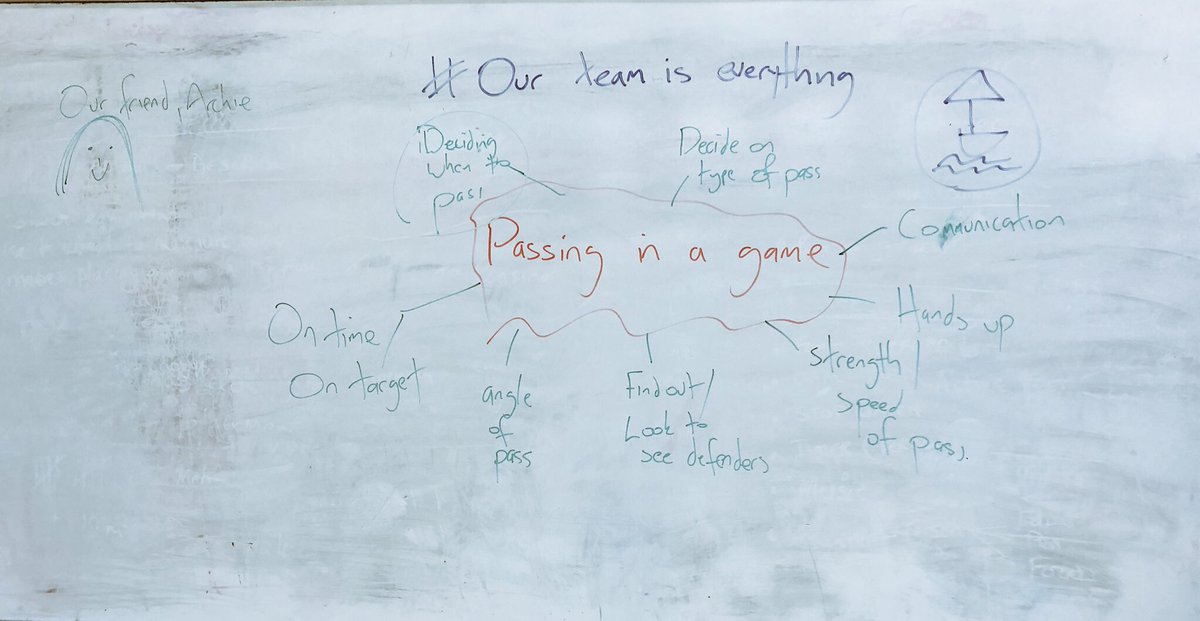 # Our team is everythng
Our friend, Archie
Deciding
when to
pass
Decide on
type of pass
Communication
Passing in a game
Hands up
On time
On target
strength /
speed
of pass.
angle
of
pass
Find out /
Look to
see defenders
Food